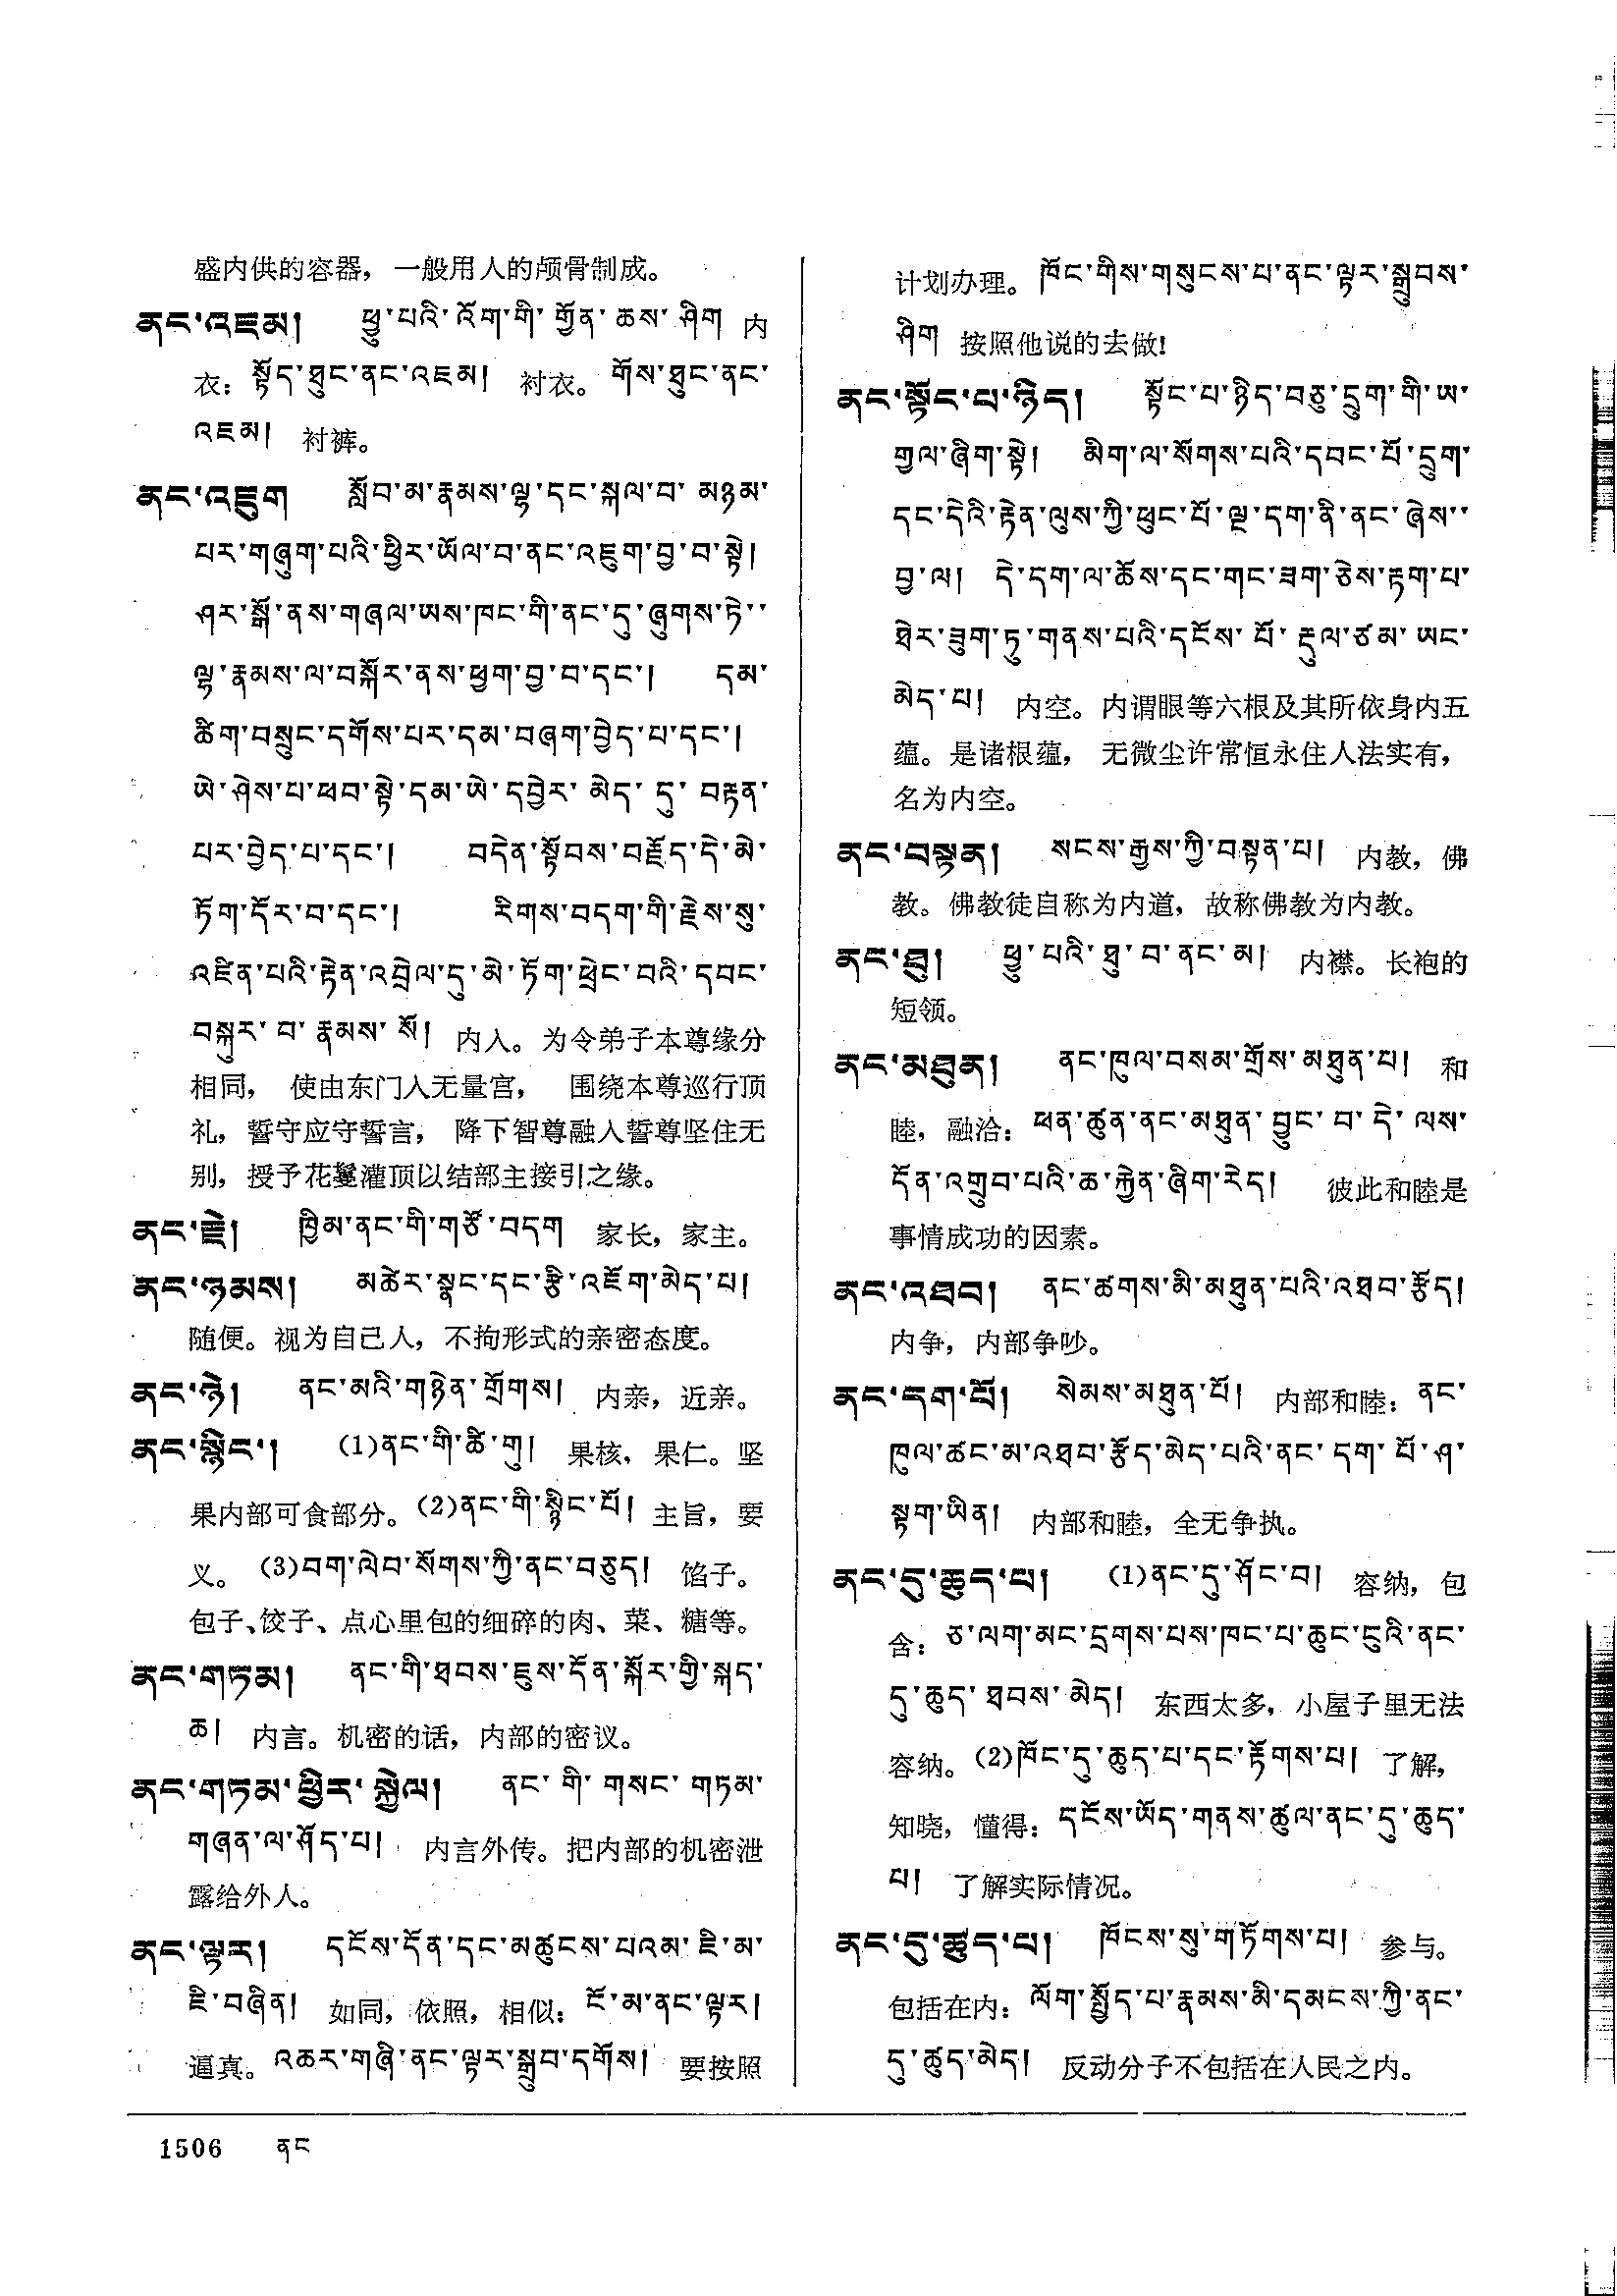 盛内供的容器，一般用人的颅骨制成。
ནང་འཇམ། ཕྱུ་པའི་འོག་གི་གྱོན་ཆས་ཤིག 内
衣：སྟོད་ཐུང་ནང་འཇམ། 衬衣。གོས་ཐུང་ནང་
འཇམ། 衬裤。
ནང་འཇུག སློབ་མ་རྣམས་ལྷ་དང་སྐལ་བ་མཉམ་
པར་གཞུག་པའི་ཕྱིར་ཡོལ་བ་ནང་འཇུག་བྱ་བ་སྟེ།
ཤར་སྒོ་ནས་གཞལ་ཡས་ཁང་གི་ནང་དུ་ཞུགས་ཏེ་་
ལྷ་རྣམས་ལ་བསྐོར་ནས་ཕྱག་བྱ་བ་དང་། དམ་
ཚིག་བསྲུང་དགོས་པར་དམ་བཞག་བྱེད་པ་དང་།
ཡེ་ཤེས་པ་ཕབ་སྟེ་དམ་ཡེ་དབྱེར་མེད་དུ་བརྟན་
པར་བྱེད་པ་དང་། བདེན་སྟོབས་བརྗོད་དེ་མེ་
ཏོག་དོར་བ་དང་། རིགས་བདག་གི་རྗེས་སུ་
འཛིན་པའི་རྟེན་འབྲེལ་དུ་མེ་ཏོག་ཕྲེང་བའི་དབང་
བསྐུར་བ་རྣམས་སོ། 内入。为令弟子本尊缘分
相同，使由东门入无量宫，围绕本尊巡行顶
礼，誓守应守誓言，降下智尊融入誓尊坚住无
别，授予花鬘灌顶以结部主接引之缘。
ནང་རྗེ། ཁྱིམ་ནང་གི་གཙོ་བདག 家长，家主。
ནང་ཉམས། མཚེར་སྣང་དང་རྩི་འཇོག་མེད་པ།
随便。视为自己人，不拘形式的亲密态度。
ནང་ཉེ། ནང་མའི་གཉེན་གྲོགས། 内亲，近亲。
ནང་སྙིང་། (1)ནང་གི་ཚི་གུ། 果核，果仁。坚
果内部可食部分。(2)ནང་གི་སྙིང་པོ། 主旨，要
义。(3)བག་ལེབ་སོགས་ཀྱི་ནང་བཅུད། 馅子。
包子、饺子、点心里包的细碎的肉、菜、糖等。
ནང་གཏམ། ནང་གི་ཐབས་ཇུས་དོན་སྐོར་གྱི་སྐད་
ཆ། 内言。机密的话，内部的密议。
ནང་གཏམ་ཕྱིར་སྐྱེལ། ནང་གི་གསང་གཏམ་
གཞན་ལ་ཤོད་པ། 内言外传。把内部的机密泄
露给外人。
ནང་ལྟར། དངོས་དོན་དང་མཚུངས་པའམ་ཇི་མ་
ཇི་བཞིན། 如同，依照，相似：ངོ་མ་ནང་ལྟར།
逼真。འཆར་གཞི་ནང་ལྟར་སྒྲུབ་དགོས། 要按照
计划办理。ཁོང་གིས་གསུངས་པ་ནང་ལྟར་སྒྲུབས་
ཤིག 按照他说的去做!
ནང་སྟོང་པ་ཉིད། སྟོང་པ་ཉིད་བཅུ་དྲུག་གི་ཡ་
གྱལ་ཞིག་སྟེ། མིག་ལ་སོགས་པའི་དབང་པོ་དྲུག་
དང་དེའི་རྟེན་ལུས་ཀྱི་ཕུང་པོ་ལྔ་དག་ནི་ནང་ཞེས་་
བྱ་ལ། དེ་དག་ལ་ཆོས་དང་གང་ཟག་ཅེས་རྟག་པ་
ཐེར་ཟུག་ཏུ་གནས་པའི་དངོས་པོ་རྡུལ་ཙམ་ཡང་
མེད་པ། 内空。内谓眼等六根及其所依身内五
蕴。是诸根蕴，无微尘许常恒永住人法实有，
名为内空。
ནང་བསྟན། སངས་རྒྱས་ཀྱི་བསྟན་པ། 内教，佛
教。佛教徒自称为内道，故称佛教为内教。
ནང་ཐུ། ཕྱུ་པའི་ཐུ་བ་ནང་མ། 内襟。长袍的
短领。
ནང་མཐུན། ནང་ཁུལ་བསམ་གྲོས་མཐུན་པ། 和
睦，融洽：ཕན་ཚུན་ནང་མཐུན་བྱུང་བ་དེ་ལས་
དོན་འགྲུབ་པའི་ཆ་རྐྱེན་ཞིག་རེད། 彼此和睦是
事情成功的因素。
ནང་འཐབ། ནང་ཚགས་མི་མཐུན་པའི་འཐབ་རྩོད།
内争，内部争吵。
ནང་དག་པོ། སེམས་མཐུན་པོ། 内部和睦：ནང་
ཁུལ་ཚང་མ་འཐབ་རྩོད་མེད་པའི་ནང་དག་པོ་ཤ་
སྟག་ཡིན། 内部和睦，全无争执。
ནང་དུ་ཆུད་པ། (1)ནང་དུ་ཤོང་བ། 容纳，包
含：ཅ་ལག་མང་དྲགས་པས་ཁང་པ་ཆུང་ངུའི་ནང་
དུ་ཆུད་ཐབས་མེད། 东西太多，小屋子里无法
容纳。(2)ཁོང་དུ་ཆུད་པ་དང་རྟོགས་པ། 了解，
知晓，懂得：དངོས་ཡོད་གནས་ཚུལ་ནང་དུ་ཆུད་
པ། 了解实际情况。
ནང་དུ་ཚུད་པ། ཁོངས་སུ་གཏོགས་པ། 参与。
包括在内：ལོག་སྤྱོད་པ་རྣམས་མི་དམངས་ཀྱི་ནང་
དུ་ཚུད་མེད། 反动分子不包括在人民之内。
1506 ནང